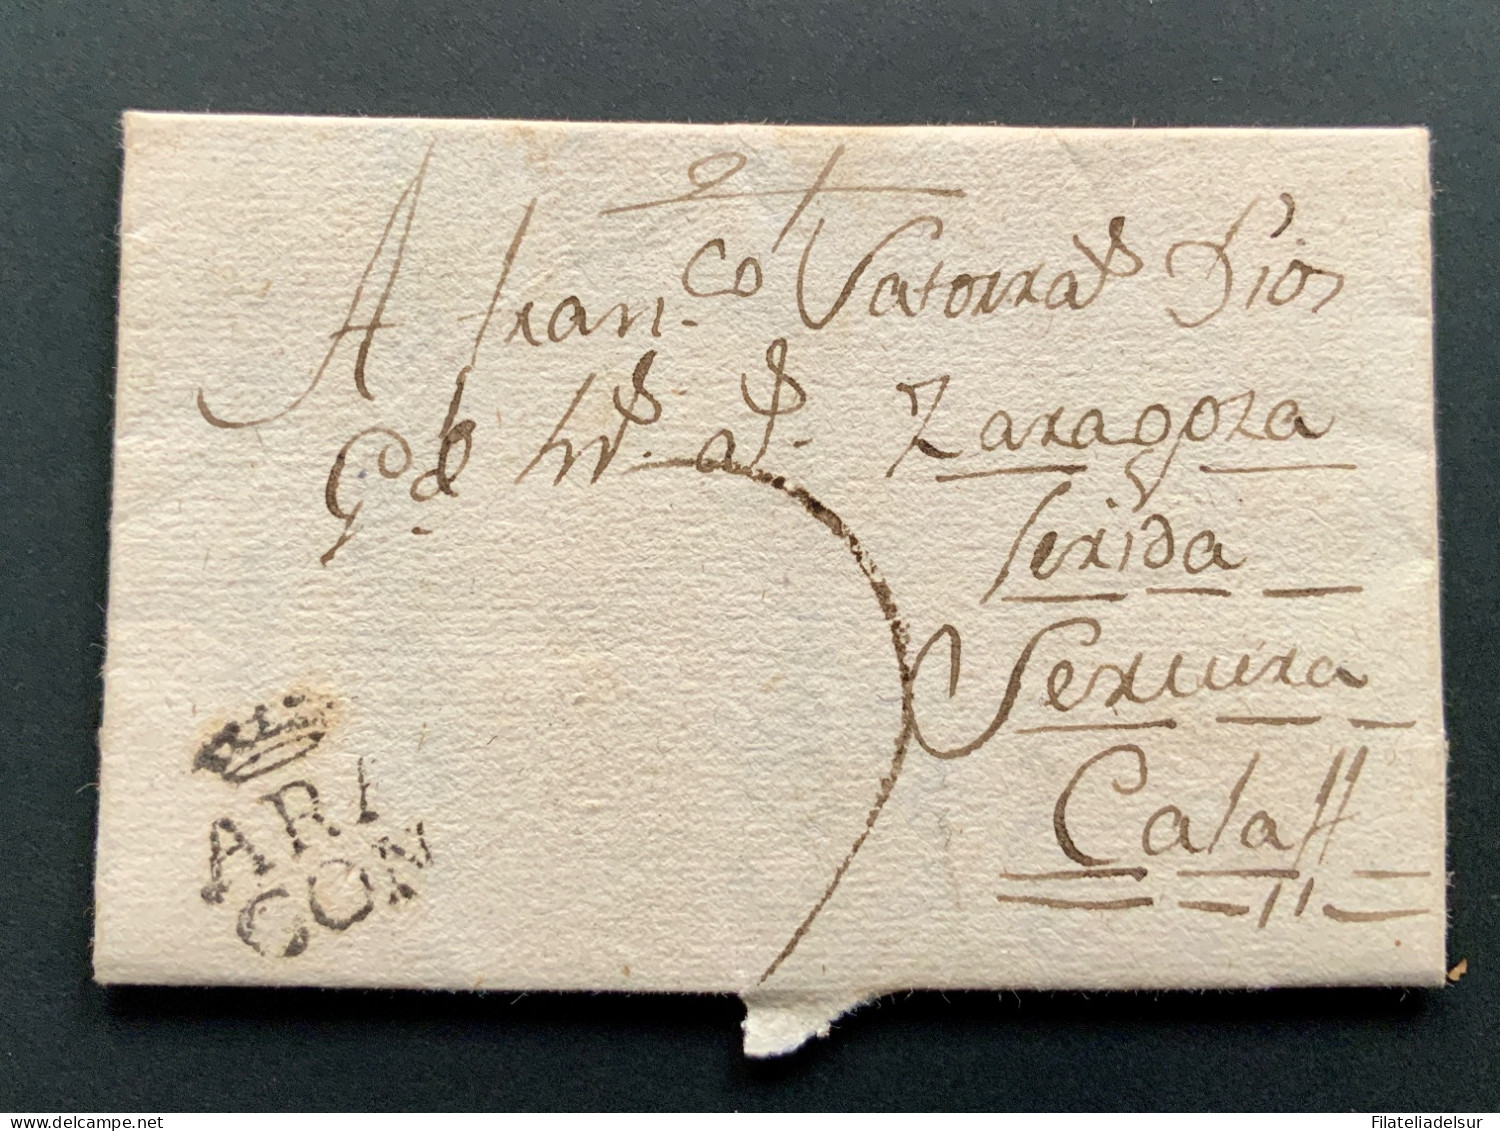 A Fran.co Satorra ds Dios
Gde ms. as. Zaragoza
Lerida
Servera
Calaff
ARA
CON
Filateliadelsur